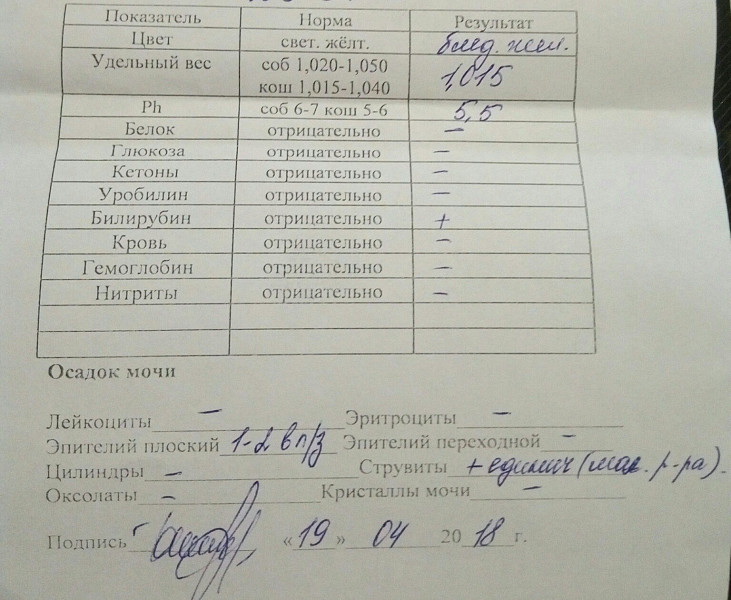 Показатель Норма Результат
Цвет свет. жёлт. блед. жел.
Удельный вес соб 1,020-1,050
кош 1,015-1,040 1,015
Ph соб 6-7 кош 5-6 5,5
Белок отрицательно –
Глюкоза отрицательно –
Кетоны отрицательно –
Уробилин отрицательно –
Билирубин отрицательно +
Кровь отрицательно –
Гемоглобин отрицательно –
Нитриты отрицательно –
Осадок мочи
Лейкоциты – Эритроциты –
Эпителий плоский 1-2 в п/з Эпителий переходной –
Цилиндры – Струвиты + единич (мал. р-ра).
Оксолаты – Кристаллы мочи –
Подпись «19» 04 2018 г.